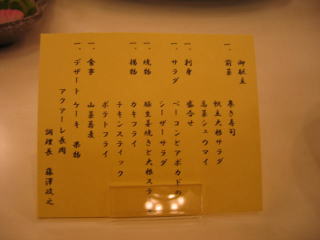 御献立
一、前菜 巻き寿司
帆立大根サラダ
高菜シュウマイ
一、刺身 盛合せ
一、サラダ ベーコンとアボカドの
シーザーサラダ
一、焼物 豚生姜焼きと大根ステーキ
一、揚物 カキフライ
チキンスティック
ポテトフライ
一、食事 山菜蕎麦
一、デザート ケーキ 果物
アクアーレ長岡
調理長 藤澤政之